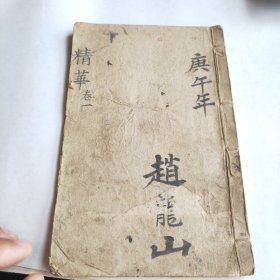 庚午年
趙龍山
精華卷一